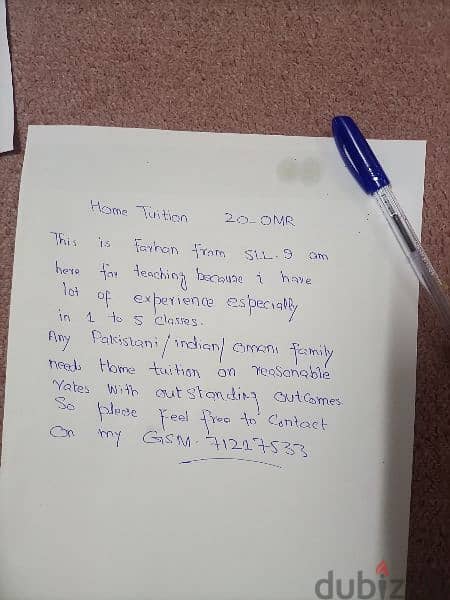 Home Tuition 20-OMR
This is Farhan from SLL.9 am
here for teaching because i have
lot of experience especially
in 1 to 5 classes.
Any Pakistani/indian/omani family
needs Home tuition on reasonable
rates with outstanding outcomes
So please feel free to Contact
on my GSM. 71217533
dubizz